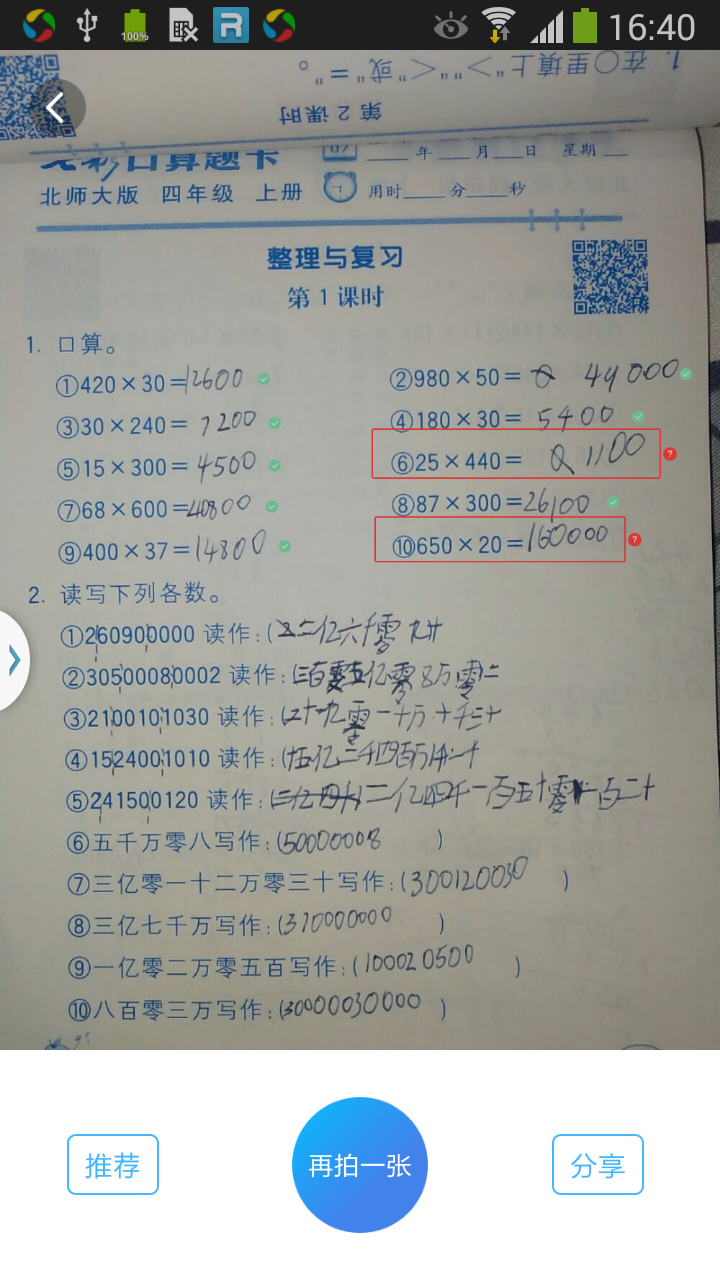 100%
R
16:40
1. 在○里填上“>”“<”或“=”。
第 2 课时
口算题卡
07 ____年____月____日 星期____
北师大版 四年级 上册 用时____分____秒
整理与复习
第 1 课时
1. 口算。
①420×30=12600 ②980×50= 49000
③30×240= 7200 ④180×30= 5400
⑤15×300= 4500 ⑥25×440= 1100 ?
⑦68×600=40800 ⑧87×300=26100
⑨400×37=14800 ⑩650×20=160000 ?
2. 读写下列各数。
①260900000 读作:(二亿六千零九十
②30500080002 读作:(三百零五亿零8万零二
③2100101030 读作:(二十一亿零一十万十千三十
④1524001010 读作:(十五亿二千四百万
⑤241500120 读作:(二亿四千一百五十零一百二十
⑥五千万零八写作:(50000008 )
⑦三亿零一十二万零三十写作:(300120030 )
⑧三亿七千万写作:(370000000 )
⑨一亿零二万零五百写作:(100020500 )
⑩八百零三万写作:(80000030000 )
推荐
再拍一张
分享